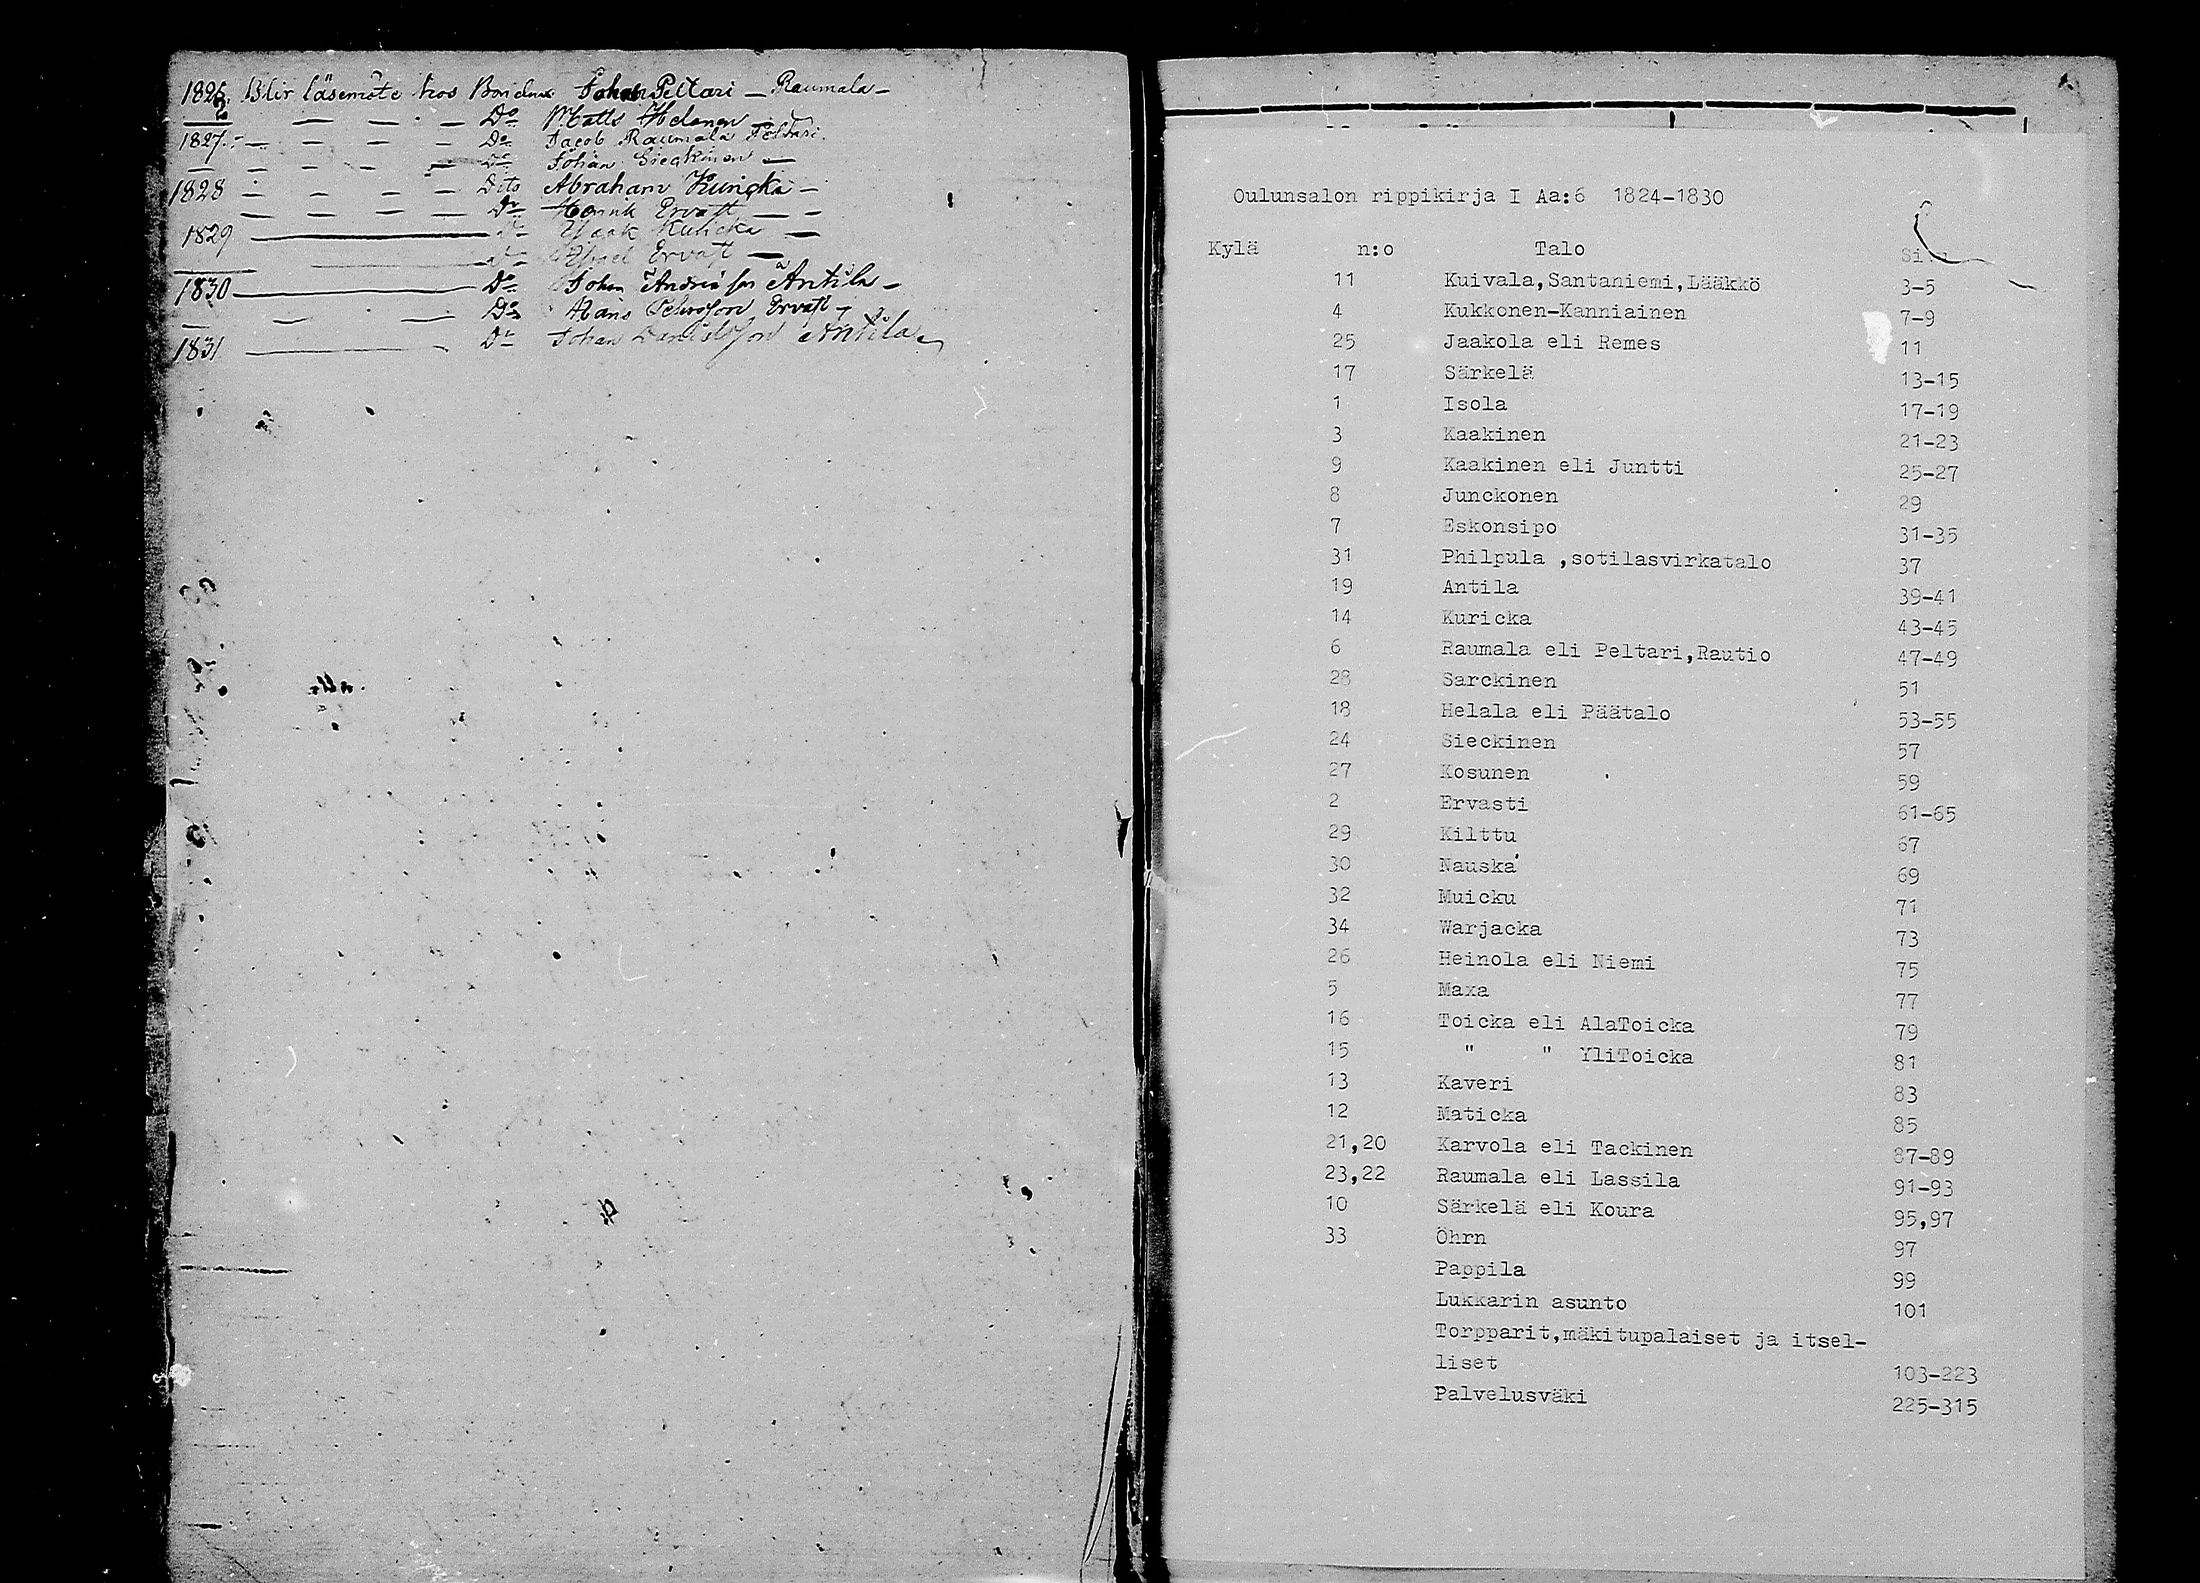 Blir läsemöte hos Bonden Johan Peltari — Raumala —
— — — — Do Matts Helanen
1827 — — — — Do Jacob Raumala Peltari
— — — — Do Johan Sieckinen —
1828 — — — — Dito Abraham Kuricka —
— — — — Do Henrik Ervast — —
1829 — Do Kuricka —
— Do Ervast —
1830 — Do Johan Andersson Antila —
— — — Do Hans Ervast
1831 — Do Johan Danielsson Antila
Oulunsalon rippikirja I Aa:6 1824-1830
Kylä n:o Talo Si
11 Kuivala,Santaniemi,Lääkkö 3-5
4 Kukkonen-Kanniainen 7-9
25 Jaakola eli Remes 11
17 Särkelä 13-15
1 Isola 17-19
3 Kaakinen 21-23
9 Kaakinen eli Juntti 25-27
8 Junckonen 29
7 Eskonsipo 31-35
31 Philpula ,sotilasvirkatalo 37
19 Antila 39-41
14 Kuricka 43-45
6 Raumala eli Peltari,Rautio 47-49
28 Sarckinen 51
18 Helala eli Päätalo 53-55
24 Sieckinen 57
27 Kosunen 59
2 Ervasti 61-65
29 Kilttu 67
30 Nauska 69
32 Muicku 71
34 Warjacka 73
26 Heinola eli Niemi 75
5 Maxa 77
16 Toicka eli AlaToicka 79
15 " " YliToicka 81
13 Kaveri 83
12 Maticka 85
21,20 Karvola eli Tackinen 87-89
23,22 Raumala eli Lassila 91-93
10 Särkelä eli Koura 95,97
33 Öhrn 97
Pappila 99
Lukkarin asunto 101
Torpparit,mäkitupalaiset ja itsel-
liset 103-223
Palvelusväki 225-315